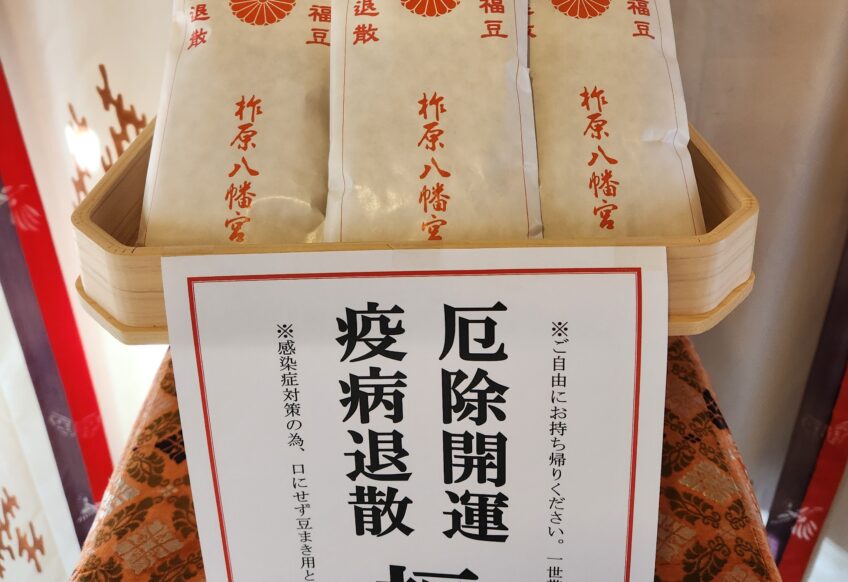 福豆
柞原八幡宮
退散
福豆
柞原八幡宮
退散
福豆
柞原八幡宮
退散
※ご自由にお持ち帰りください。一世
厄除開運
疫病退散
※感染症対策の為、口にせず豆まき用と